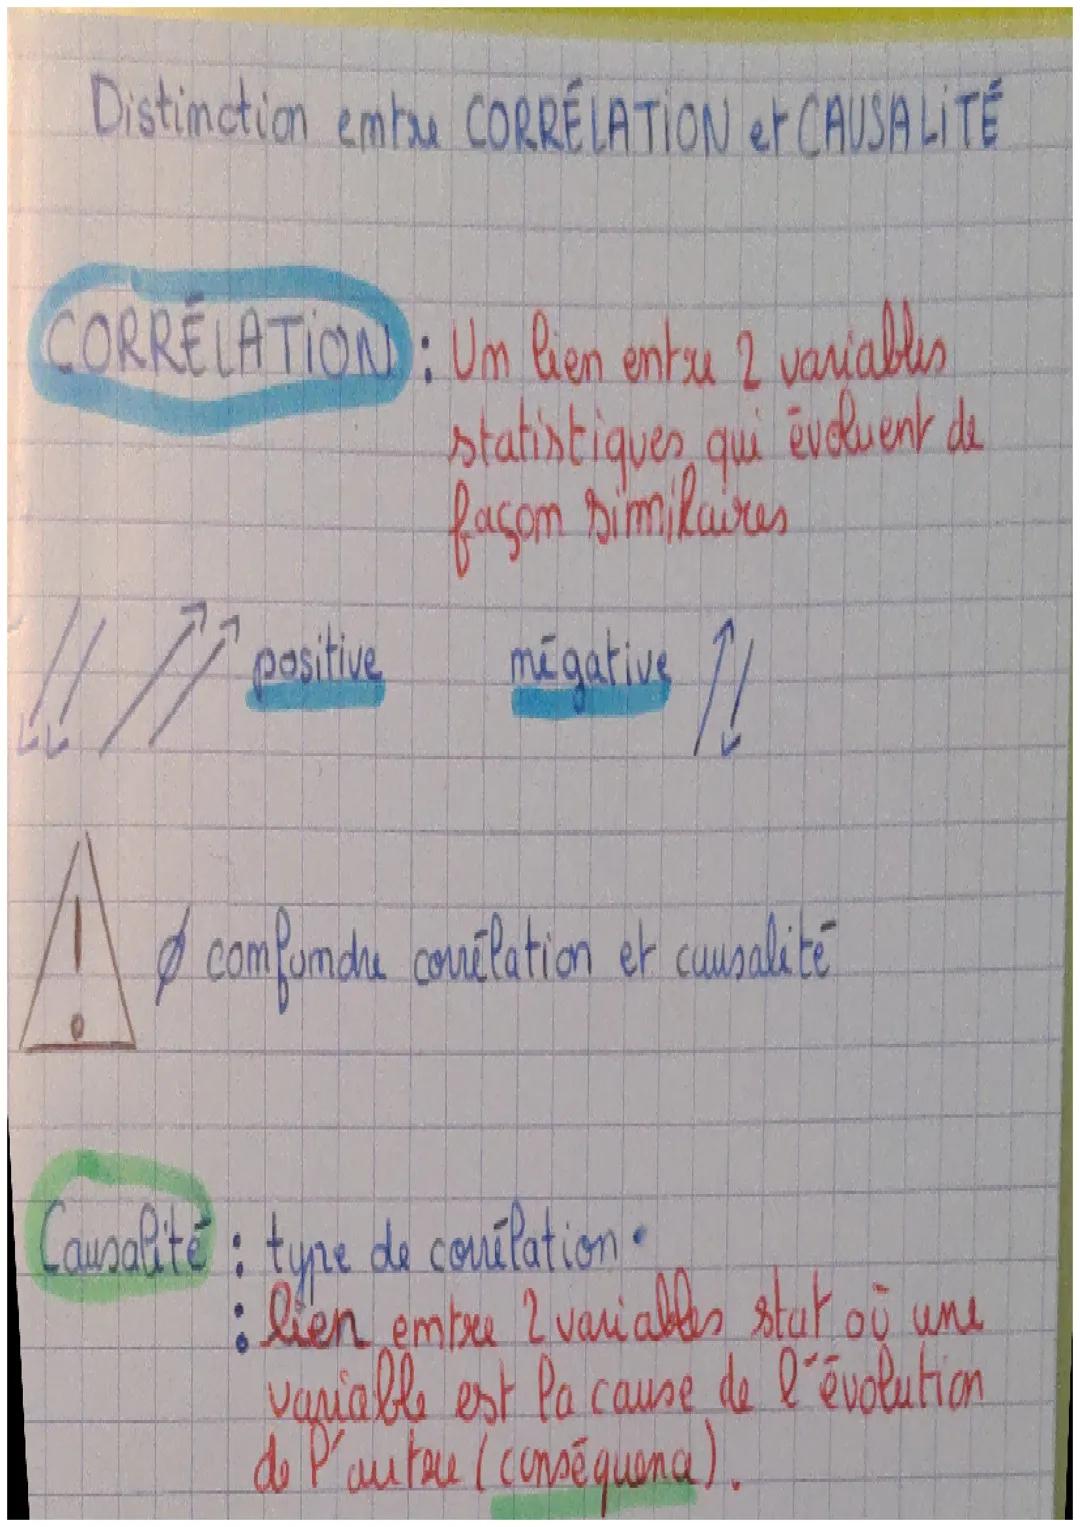 Distinction entre CORRÉLATION et CAUSALITÉ
CORRÉLATION : Un lien entre 2 variables
statistiques qui évoluent de
façon similaires
positive négative
! Ø confondre corrélation et causalité
Causalité : type de corrélation.
: lien entre 2 variables stat où une
variable est la cause de l'évolution
de l'autre (conséquence).